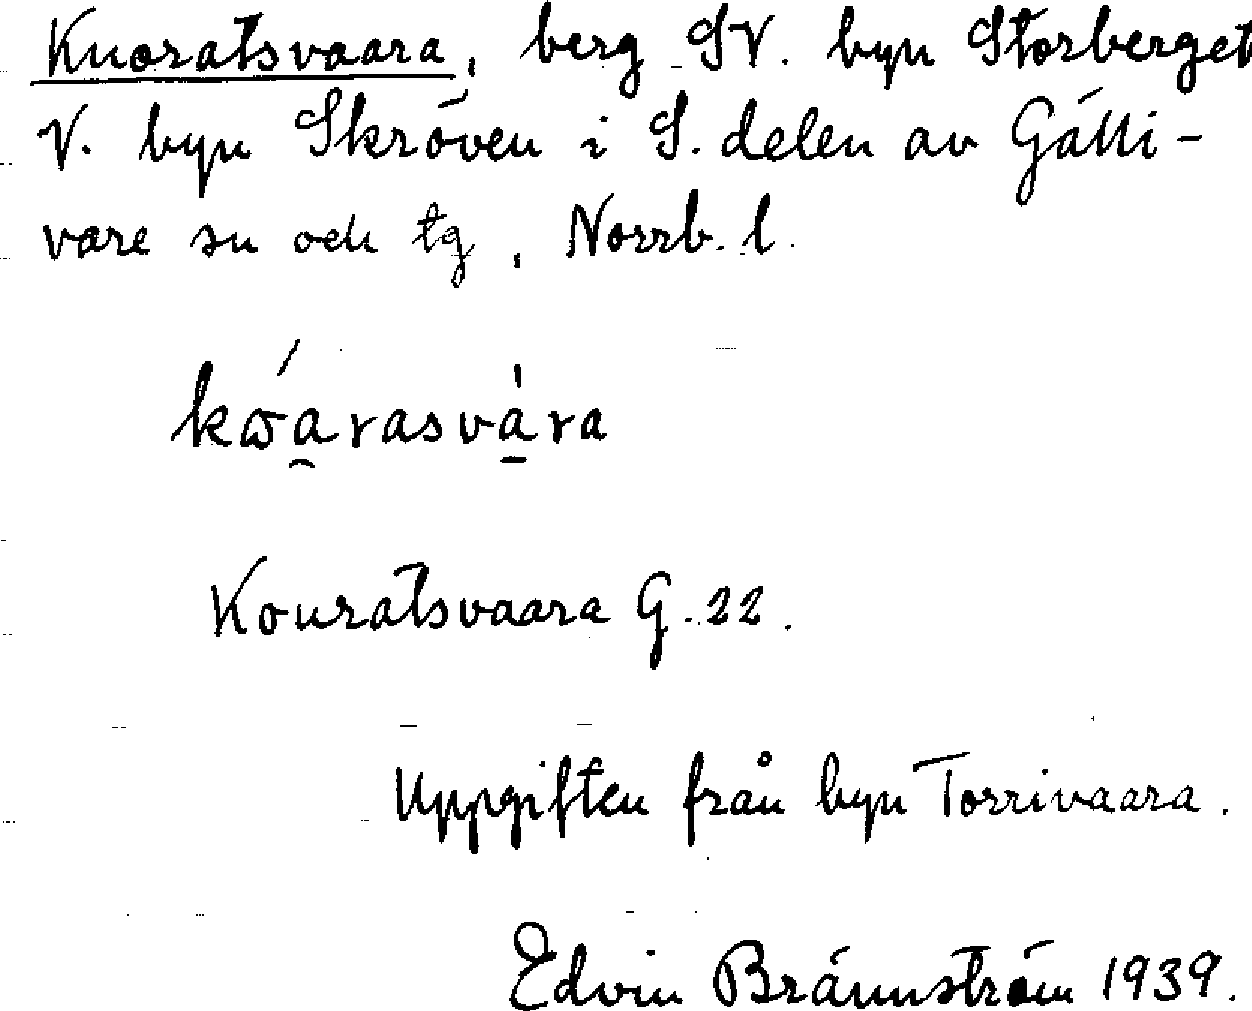 Kuoratsvaara, berg SV. byn Storberget
V. byn Skröven i S. delen av Gälli-
vare sn och tg, Norrb. l.
kώa̯rasvа̱̍ra
Kouratsvaara G. 22.
Uppgiften från byn Torrivaara.
Edvin Brännström 1939.